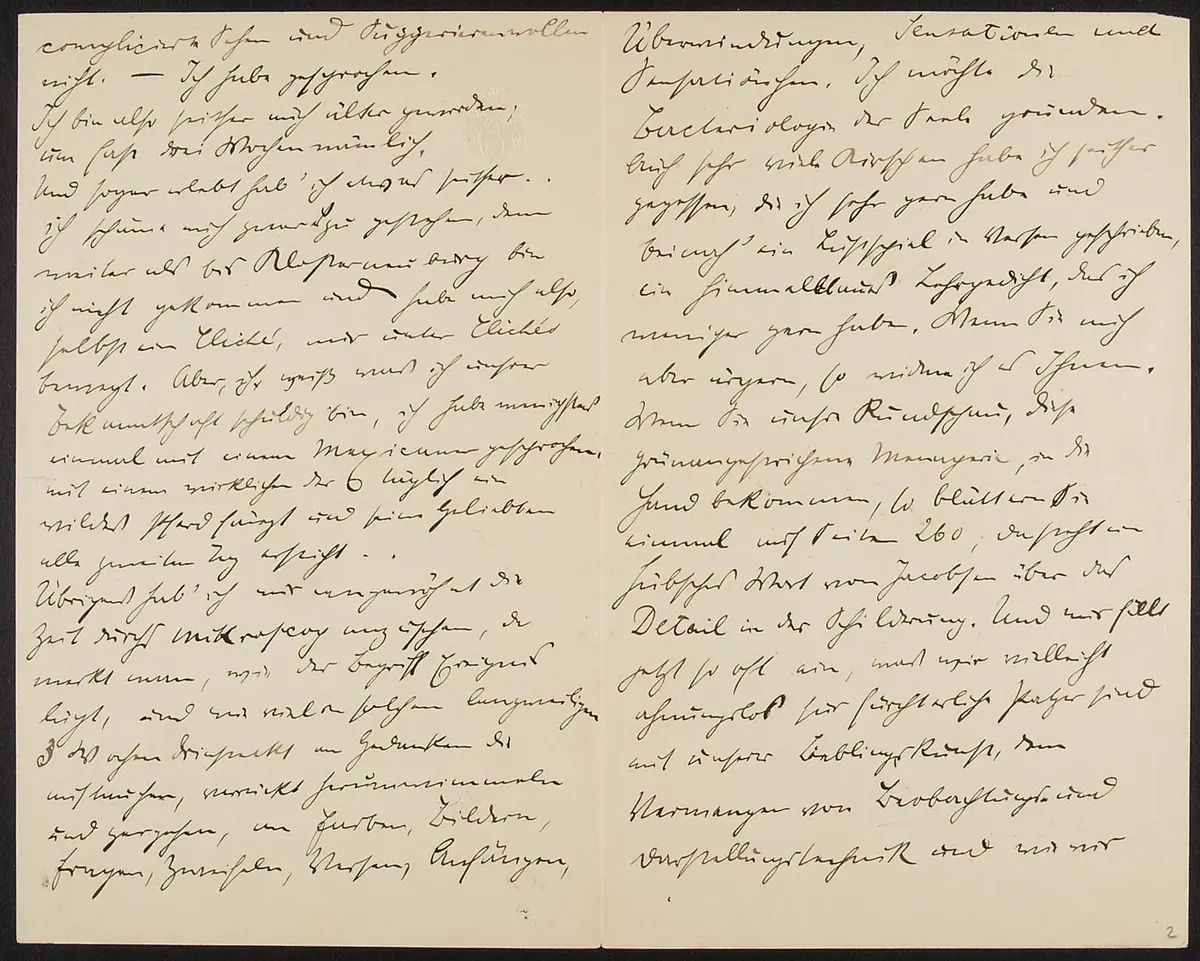 complicierte Sehen und Suggerierenwollen
nicht. — Ich habe gesprochen.
Ich bin also seither auch älter geworden;
um fast drei Wochen nämlich.
Und sogar erlebt hab' ich etwas seither . .
ich schäme mich zwar zu gestehen, denn
weiter als bis Klosterneuburg bin
ich nicht gekommen und habe mich also,
selbst ein Cliché, nur unter Clichés
bewegt. Aber, ich weiß was ich unsrer
Bekanntschaft schuldig bin, ich habe wenigstens
einmal mit einem Mexicaner gesprochen,
mit einem wirklichen der 6 täglich ein
wildes Pferd fängt und seine Geliebten
alle zweiten Tag ersticht . .
Übrigens hab' ich mir angewöhnt die
Zeit durchs Mikroscop anzusehen, da
merkt man, wie der Begriff Ereignis
lügt, und wie viel in solchen langweiligen
3 Wochen drinsteckt an Gedanken die
auftauchen, verrückt herumwimmeln
und zergehen, an Farben, Bildern,
Fragen, Zweifeln, Versen, Anfängen,
Überwindungen, Sensationen und
Sensatiönchen. Ich möchte die
Bacteriologie der Seele gründen.
Auch sehr viele Kirschen habe ich seither
gegessen, die ich sehr gern habe und
beinah' ein Lustspiel in Versen geschrieben,
ein himmelblaues Lehrgedicht, das ich
weniger gern habe. Wenn Sie mich
aber ärgern, so widme ich es Ihnen.
Wenn Sie unsre Rundschau, diese
grünangestrichene Menagerie, in die
Hand bekommen, so blättern Sie
einmal auf Seite 260, da steht ein
hübsches Wort von Jacobsen über das
Detail in der Schilderung. Und mir fällt
jetzt so oft ein, was wir vielleicht
ahnungslos für fürchterliche Patzer sind
mit unserer Lieblingskunst, dem
Vermengen von Beobachtungs- und
Darstellungstechnik und wie wir
2